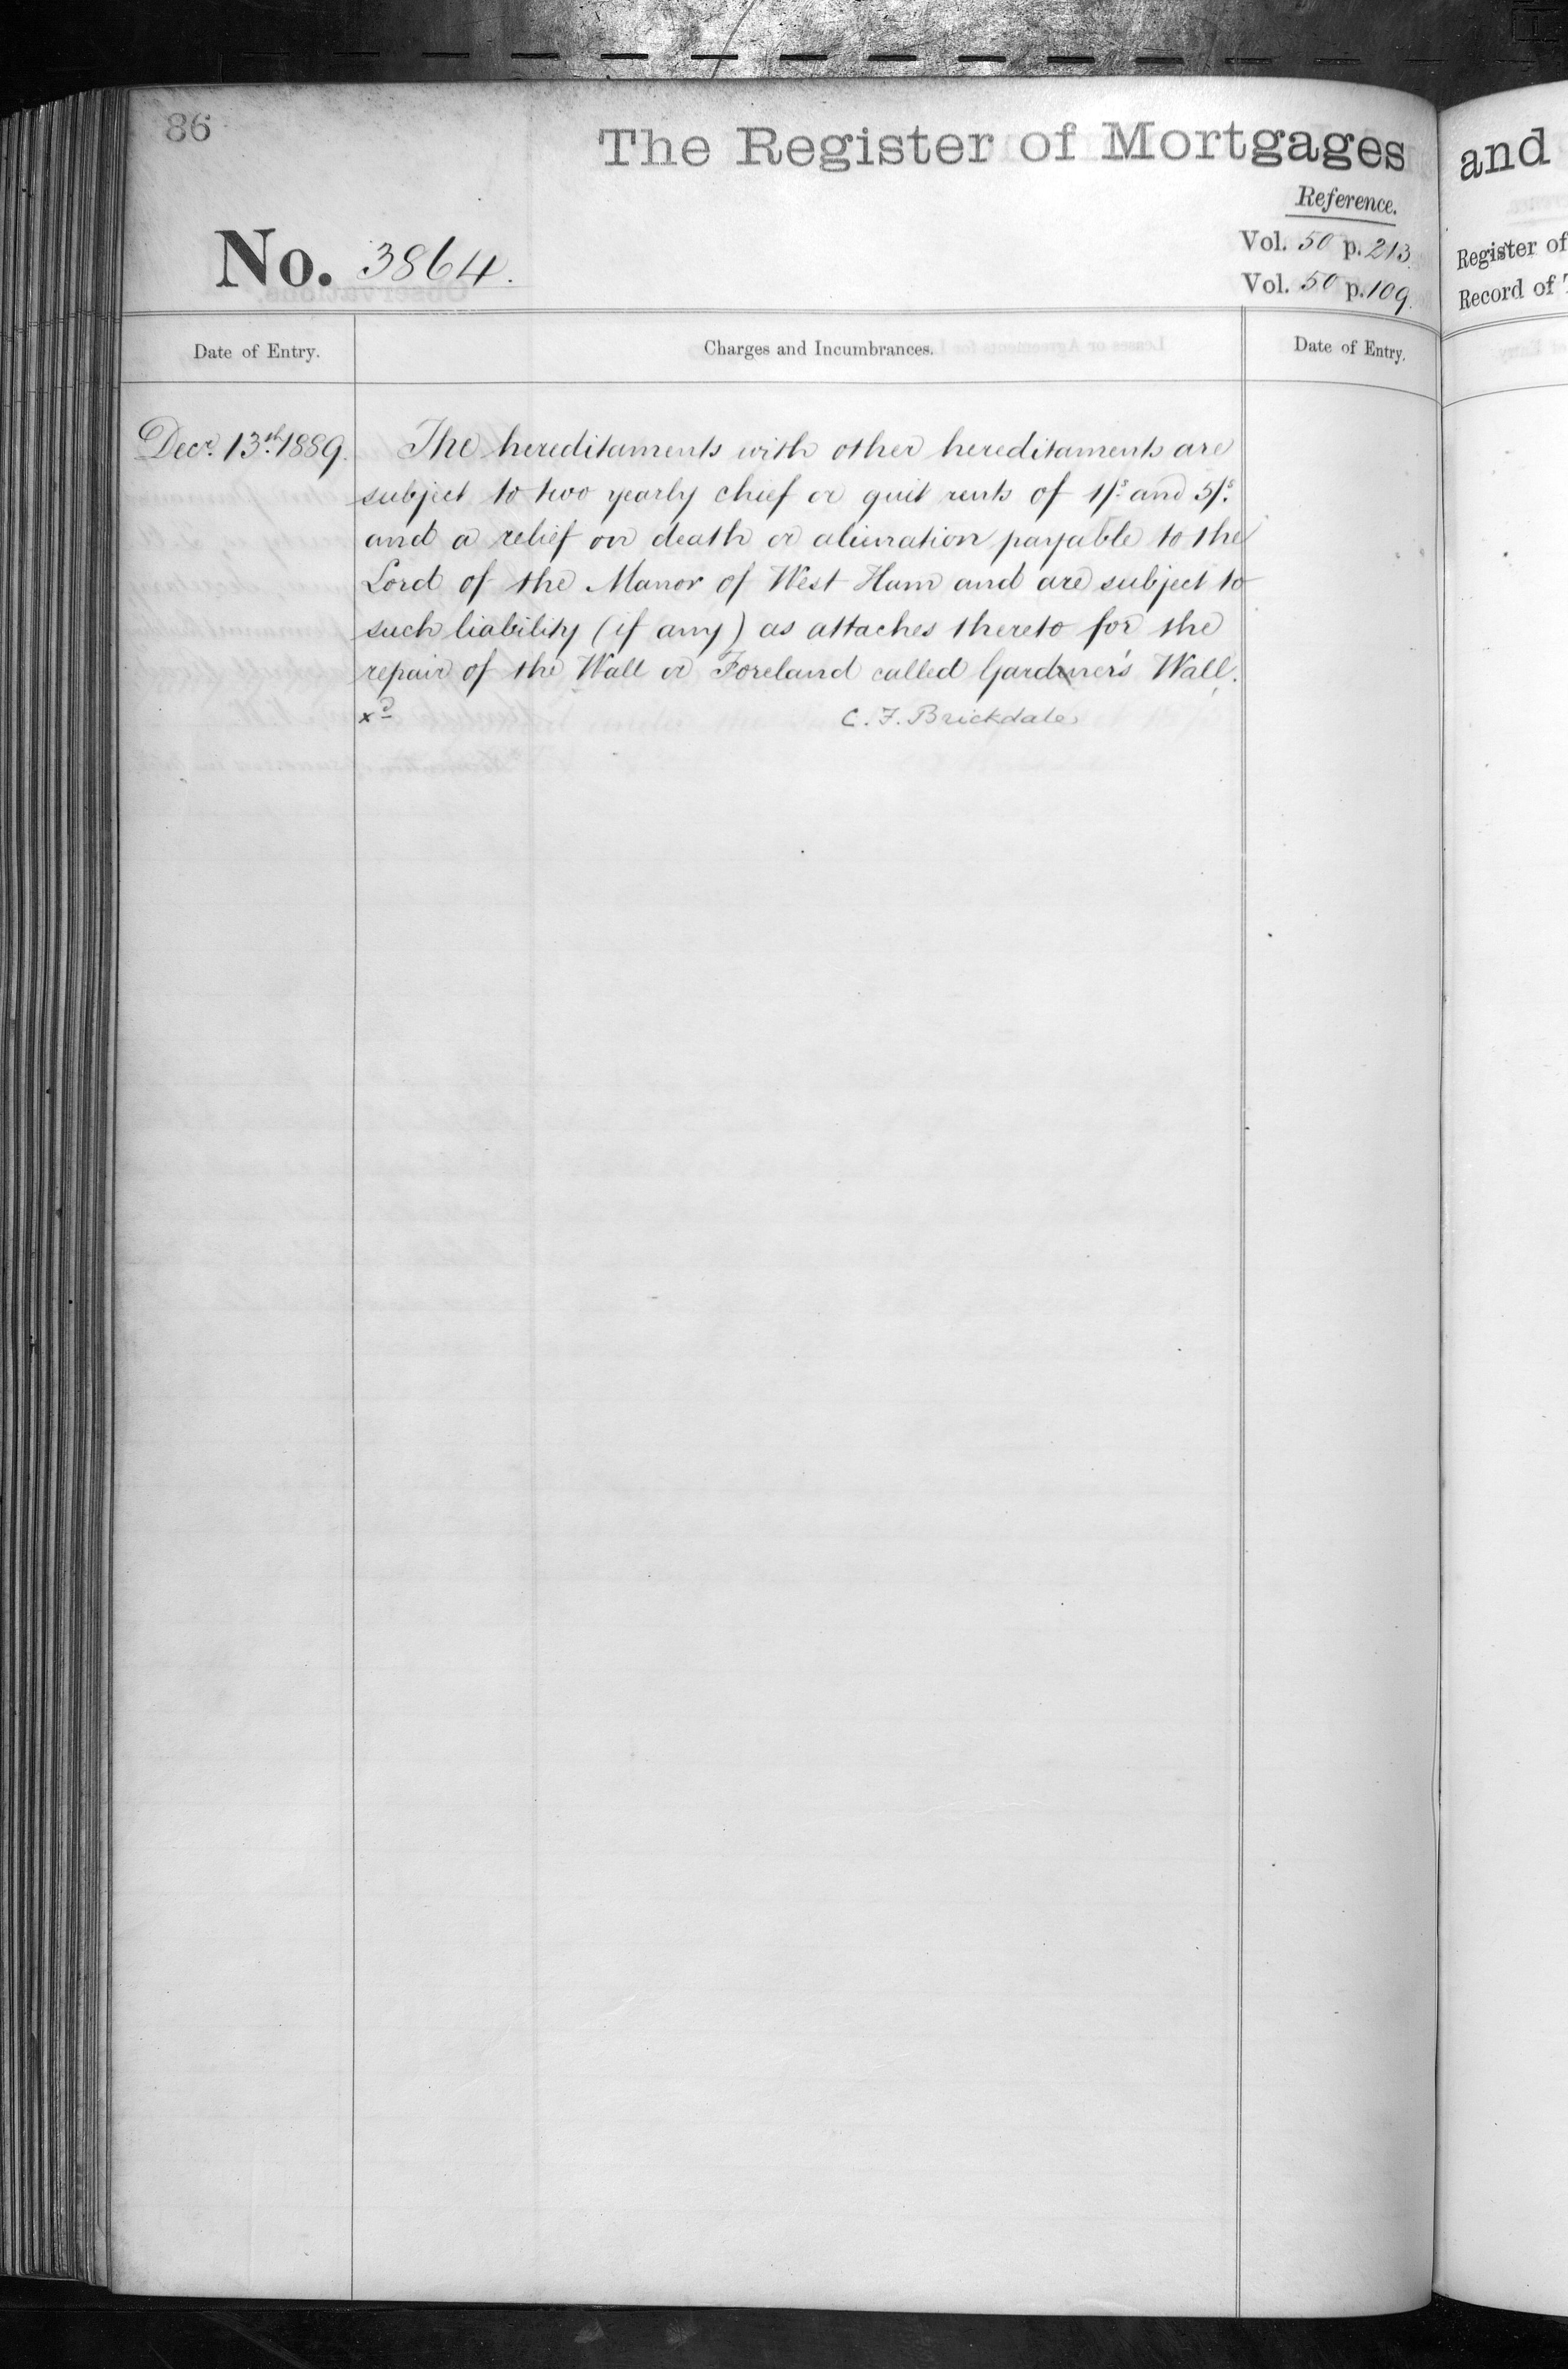 86
The Register of Mortgages
and
Reference.
No. 3864.
Vol. 50 p. 213.
Vol. 50 p. 109.
Register of
Record of
Date of Entry.
Charges and Incumbrances.
Date of Entry.
Decr. 13th 1889.
The hereditaments with other hereditaments are
subject to two yearly chief or quit rents of 1/s. and 5/s.
and a relief on death or alienation payable to the
Lord of the Manor of West Ham and are subject to
such liability (if any) as attaches thereto for the
repair of the Wall or Foreland called Gardner's Wall.
xd
C. F. Brickdale